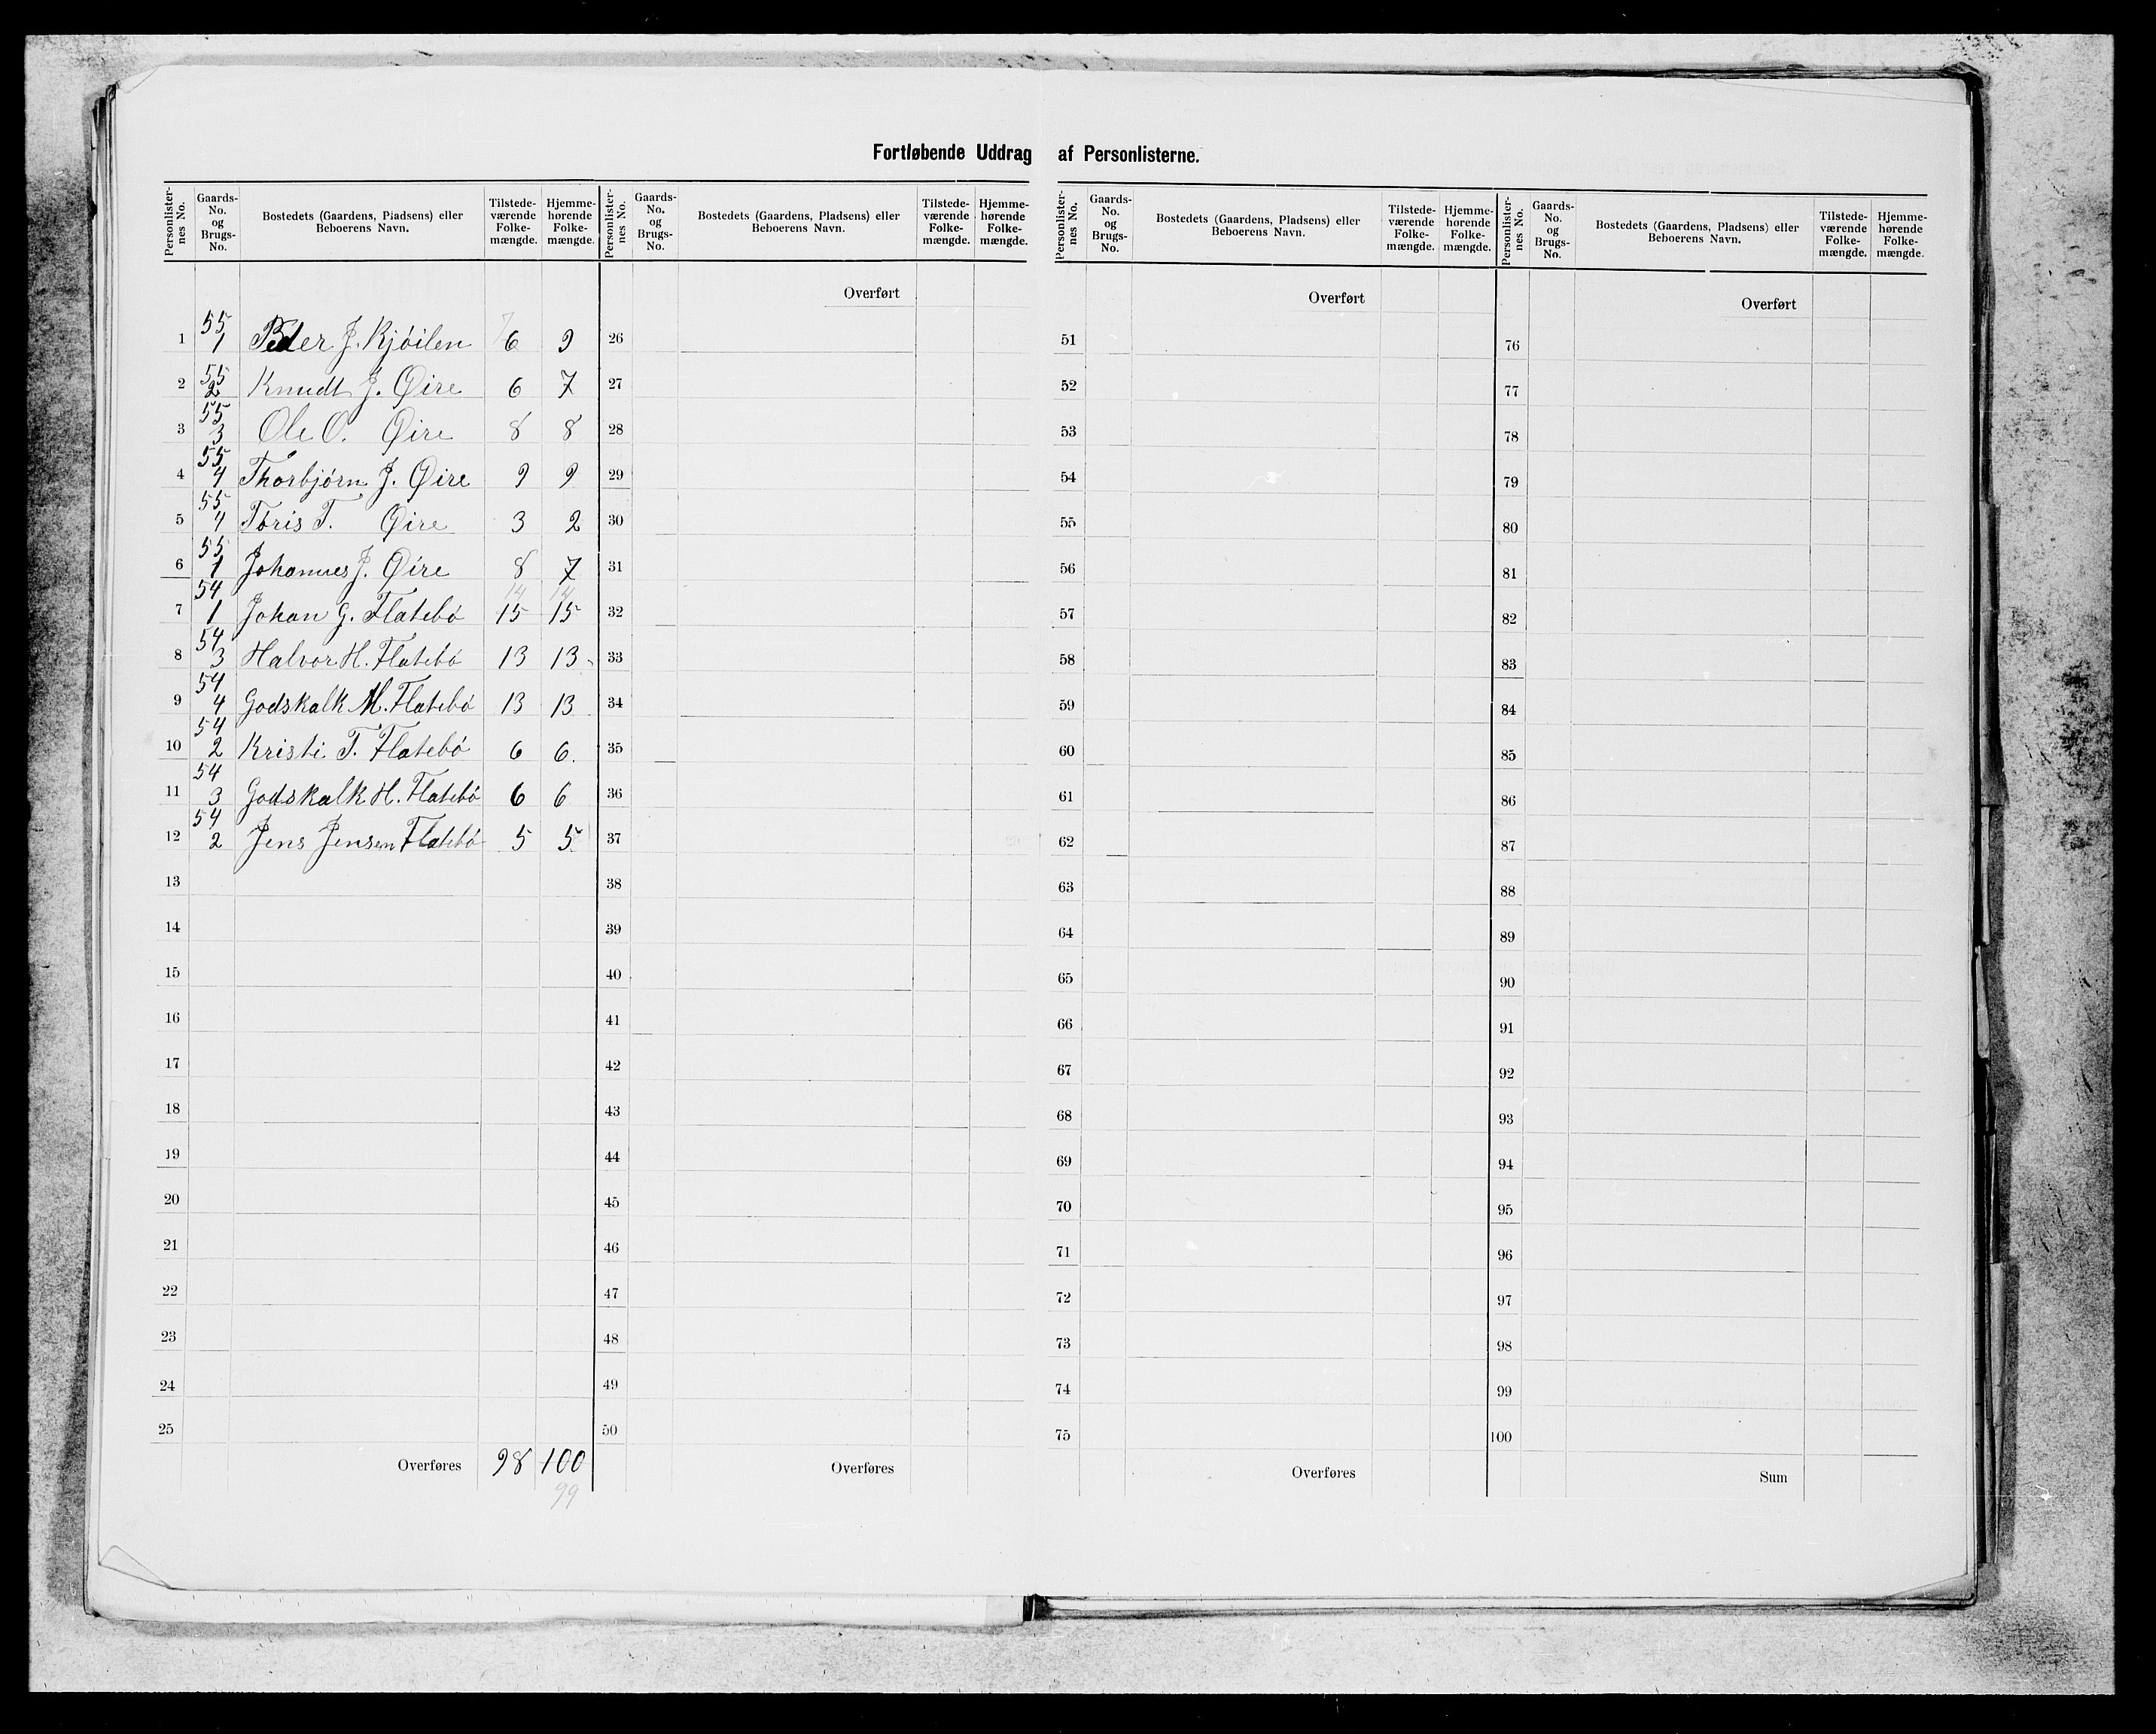 Fortløbende Uddrag af Personlisterne.
Personlisternes No. Gaards-No. og Brugs-No. Bostedets (Gaardens, Pladsens) eller Beboerens Navn. Tilstedeværende Folkemængde. Hjemmehørende Folkemængde.
1 55 1 Peder J. Kjøilen 7 6 9
2 55 2 Knudt J. Øire 6 7
3 55 3 Ole O. Øire 8 8
4 55 4 Thorbjørn J. Øire 9 9
5 55 4 Toris T. Øire 3 2
6 55 1 Johannes J. Øire 8 7
14 14
7 54 1 Johan G. Flatebø 15 15
8 54 3 Halvor H. Flatebø 13 13
9 54 4 Godskalk M. Flatebø 13 13
10 54 2 Kristi T. Flatebø 6 6.
11 54 3 Godskalk H. Flatebø 6 6
12 54 2 Jens Jensen Flatebø 5 5
13
14
15
16
17
18
19
20
21
22
23
24
25
Overføres 98 100
99
Personlisternes No. Gaards-No. og Brugs-No. Bostedets (Gaardens, Pladsens) eller Beboerens Navn. Tilstedeværende Folkemængde. Hjemmehørende Folkemængde.
Overført
26
27
28
29
30
31
32
33
34
35
36
37
38
39
40
41
42
43
44
45
46
47
48
49
50
Overføres
Personlisternes No. Gaards-No. og Brugs-No. Bostedets (Gaardens, Pladsens) eller Beboerens Navn. Tilstedeværende Folkemængde. Hjemmehørende Folkemængde.
Overført
51
52
53
54
55
56
57
58
59
60
61
62
63
64
65
66
67
68
69
70
71
72
73
74
75
Overføres
Personlisternes No. Gaards-No. og Brugs-No. Bostedets (Gaardens, Pladsens) eller Beboerens Navn. Tilstedeværende Folkemængde. Hjemmehørende Folkemængde.
Overført
76
77
78
79
80
81
82
83
84
85
86
87
88
89
90
91
92
93
94
95
96
97
98
99
100
Sum